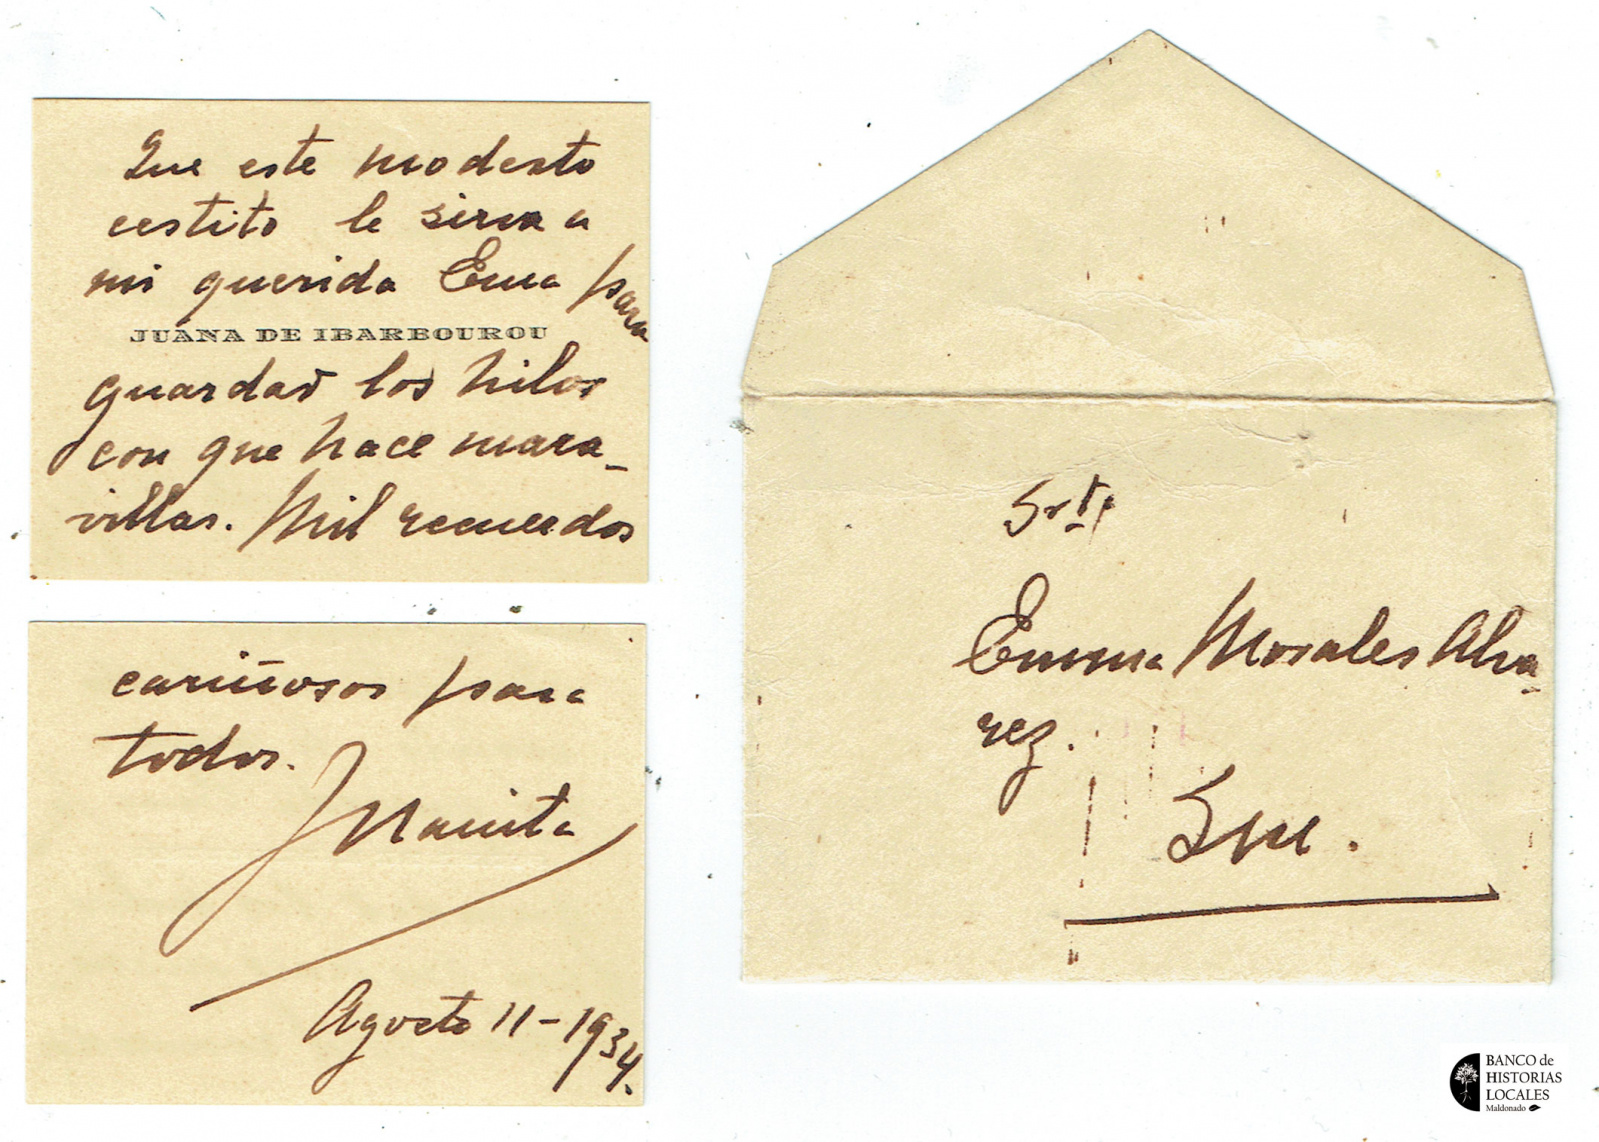 Que este modesto
cestito le sirva a
mi querida Ema para
JUANA DE IBARBOUROU
guardar los hilos
con que hace mara-
villas. Mil recuerdos
cariñosos para
todos.
Juanita
Agosto 11-1934.
Srta
Emma Morales Alva-
rez.
S/m.
BANCO de
HISTORIAS
LOCALES
Maldonado